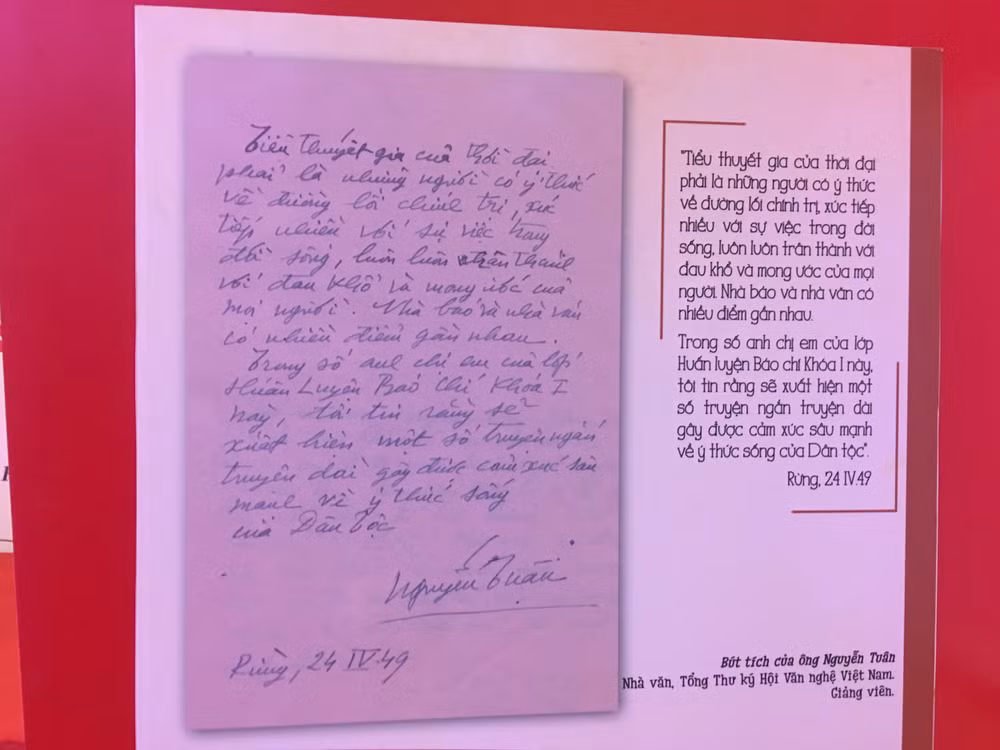 Tiểu thuyết gia của thời đại
phải là những người có ý thức
về đường lối chính trị, xúc
tiếp nhiều với sự việc trong
đời sống, luôn luôn trân thành
với đau khổ và mong ước của
mọi người. Nhà báo và nhà văn
có nhiều điểm gần nhau.
Trong số anh chị em của lớp
Huấn Luyện Báo Chí Khoá I
này, tôi tin rằng sẽ
xuất hiện một số truyện ngắn
truyện dài gây được cảm xúc sâu
mạnh về ý thức sống
của Dân Tộc
Nguyễn Tuân
Rừng, 24 IV.49
"Tiểu thuyết gia của thời đại
phải là những người có ý thức
về đường lối chính trị, xúc tiếp
nhiều với sự việc trong đời
sống, luôn luôn trân thành với
đau khổ và mong ước của mọi
người. Nhà báo và nhà văn có
nhiều điểm gần nhau.
Trong số anh chị em của lớp
Huấn luyện Báo chí Khóa I này,
tôi tin rằng sẽ xuất hiện một
số truyện ngắn truyện dài
gây được cảm xúc sâu mạnh
về ý thức sống của Dân tộc".
Rừng, 24 IV.49
Bút tích của ông Nguyễn Tuân
Nhà văn, Tổng Thư ký Hội Văn nghệ Việt Nam.
Giảng viên.